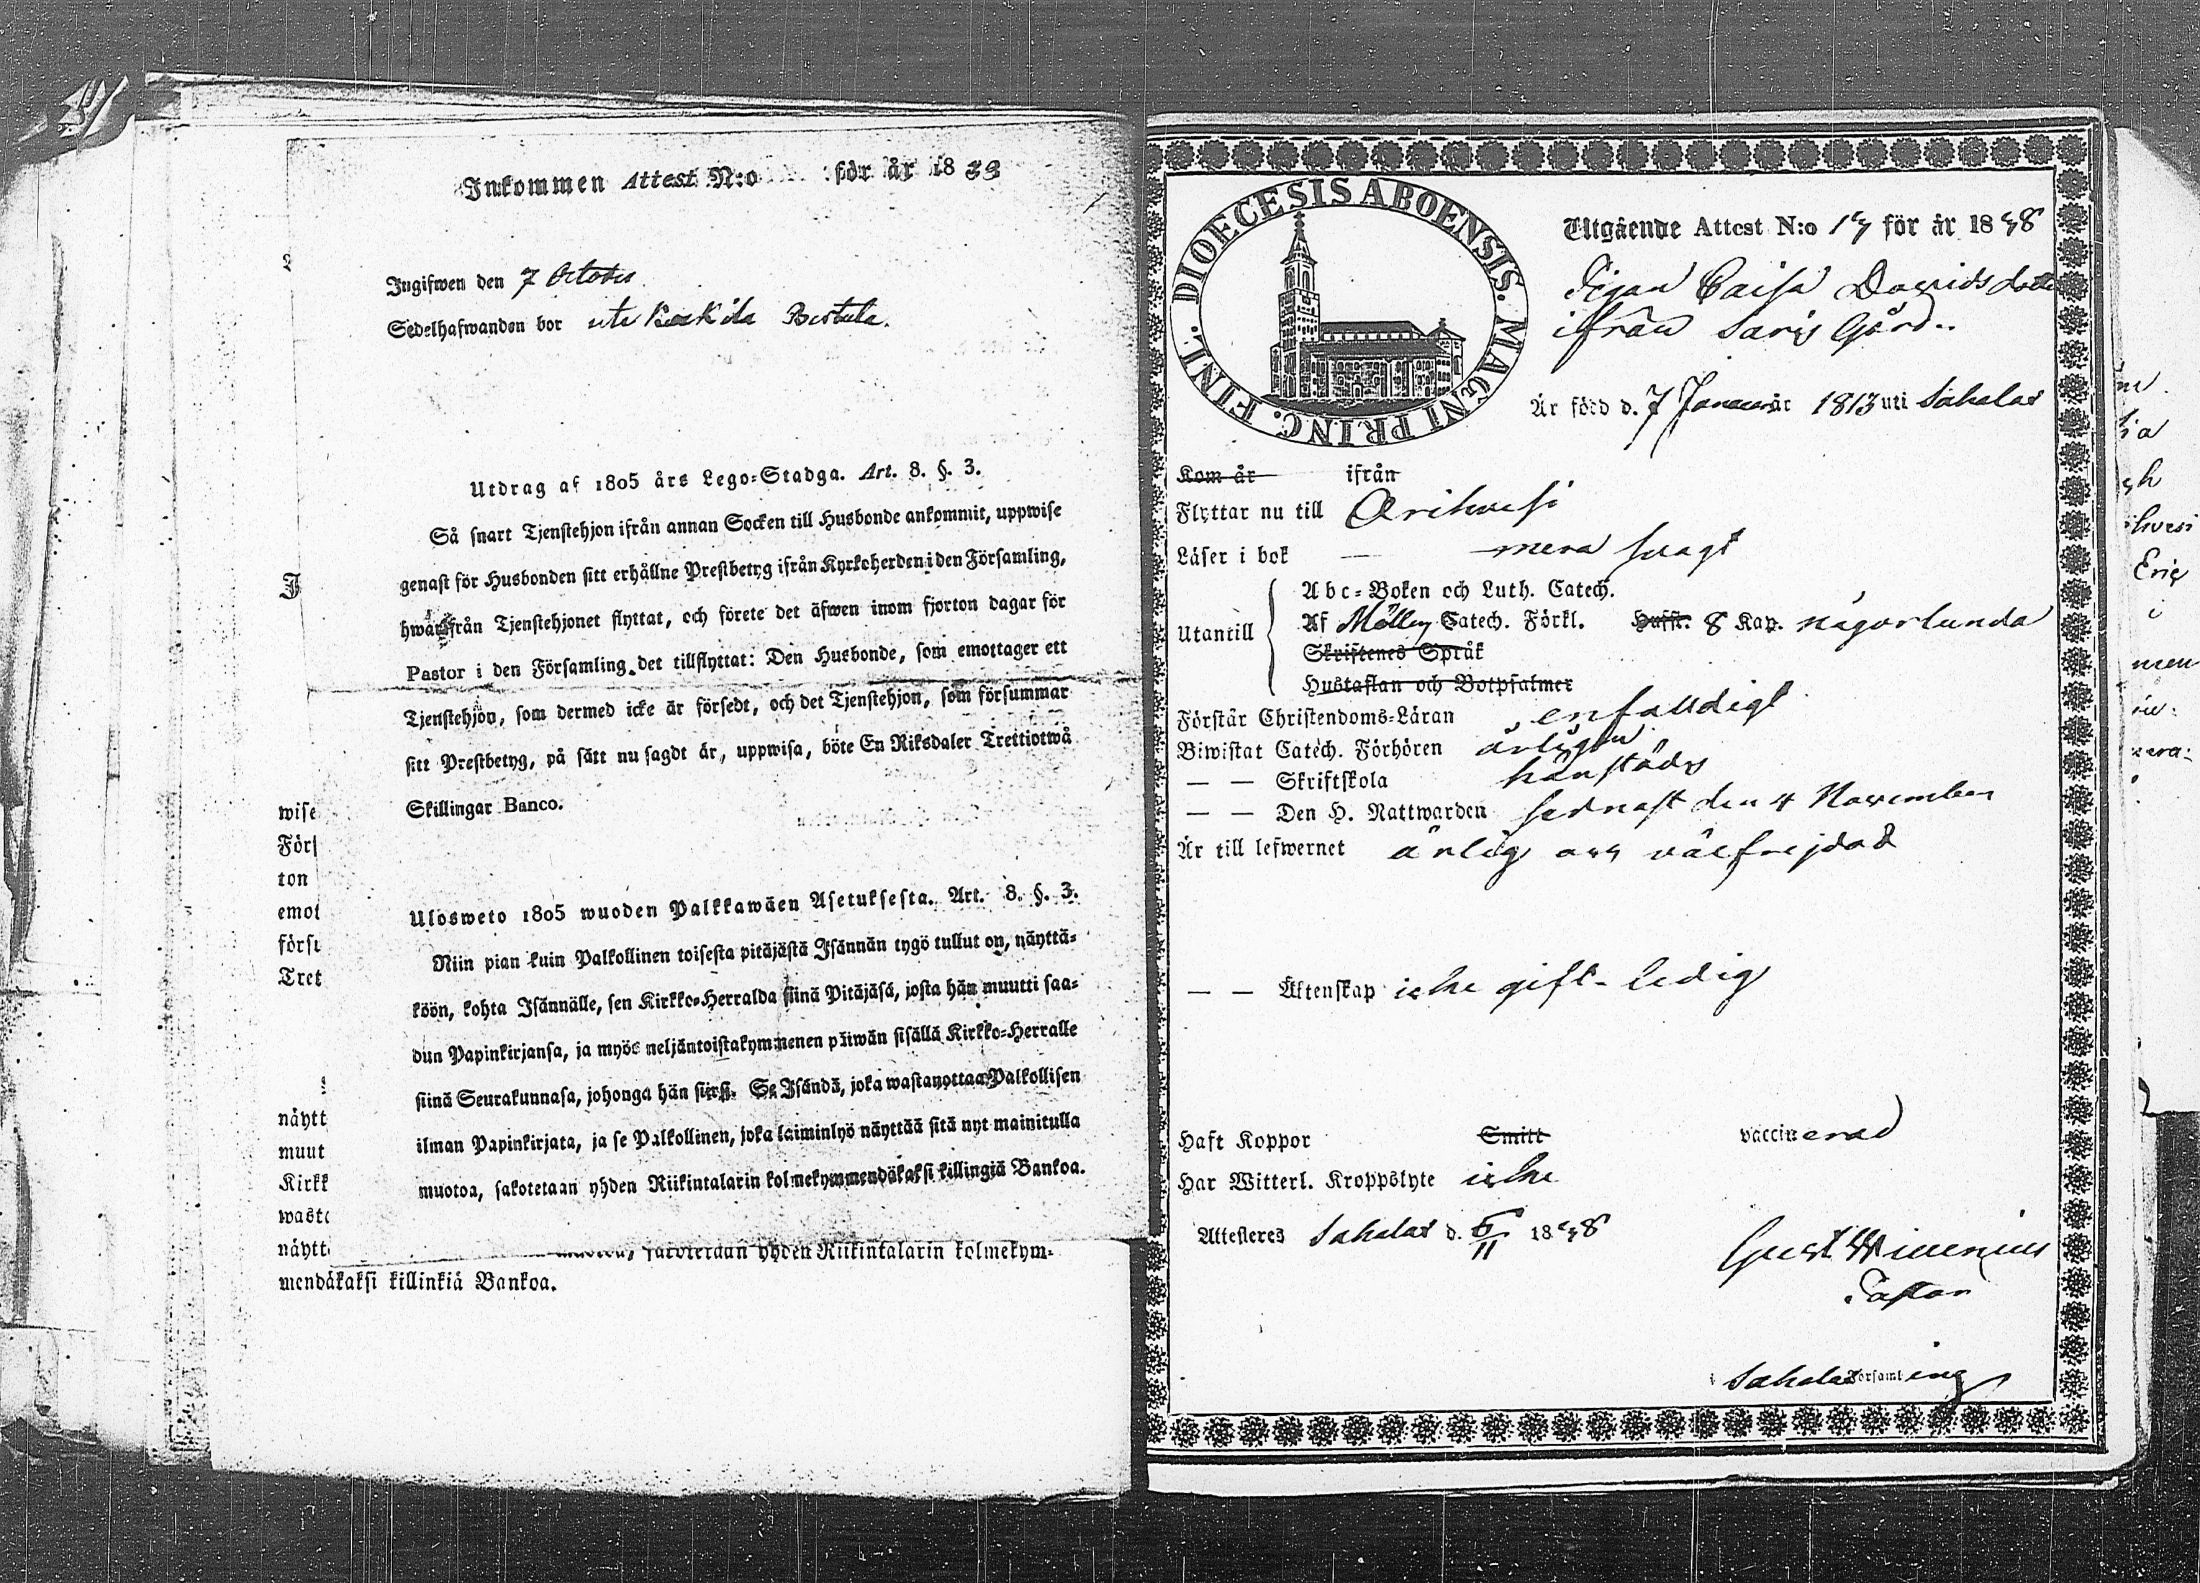 Inkommen Attest N:o för år 1833
Ingifwen den 7 October
Sedelhafwanden bor uti Koskila Bertula.
Utdrag af 1805 års Lego-Stadga. Art. 8. §. 3.
Så snart Tjenstehjon ifrån annan Socken till Husbonde ankommit, uppwise
genast för Husbonden sitt erhållne Prestbetyg ifrån Kyrkoherden i den Församling,
hwarifrån Tjenstehjonet flyttat, och förete det äfwen inom fjorton dagar för
Pastor i den Församling det tillflyttat: Den Husbonde, som emottager ett
Tjenstehjon, som dermed icke är försedt, och det Tjenstehjon, som försummar
sitt Prestbetyg, på sätt nu sagdt är, uppwisa, böte En Riksdaler Trettiotwå
Skillingar Banco.
Ulosweto 1805 wuoden Palkkawäen Asetuksesta. Art. 8. §. 3.
Niin pian kuin Palkollinen toisesta pitäjästä Isännän tygö tullut on, näyttä-
köön, kohta Isännälle, sen Kirkko-Herralda siinä Pitäjäsä, josta hän muutti saa-
dun Papinkirjansa, ja myös neljäntoistakymmenen päiwän sisällä Kirkko-Herralle
siinä Seurakunnasa, johonga hän siirsi. Se Isändä, joka wastanottaa Palkollisen
ilman Papinkirjata, ja se Palkollinen, joka laiminlyö näyttää sitä nyt mainitulla
muotoa, sakotetaan yhden Riikintalarin kolmekymmendäkaksi killingiä Bankoa.
I
wise
Förs
ton
emot
först
Tret
näytt
muut
Kirkk
wast
näytt
sakotetaan yhden Riikintalarin kolmekym-
mendäkaksi killinkiä Bankoa.
DIOECESIS ABOENSIS. MAGNI PRINC. FINL.
Utgående Attest N:o 17 för år 1848
Pigan Caisa Davidsdotter
ifrån Saris Gård..
Är född d. 7 Januari år 1813 uti Sahalax
Kom år ifrån
Flyttar nu till Orihvesi
Läser i bok — mera svagt
Utantill
Abc-Boken och Luth. Catech.
Af Möllers Catech. Förkl. Husst. 8 Kap. någorlunda
Skriftenes Språk
Hustaflan och Botpsalmer
Förstår Christendoms-Läran enfalldigt
Biwistat Catech. Förhören årligen
— — Skriftskola härstädes
— — Den H. Nattwarden sednast den 4 November
Är till lefwernet ärlig och välfrejdad
— — Äktenskap icke gift - ledig
Haft Koppor Smitt vaccinerad
Har Witterl. Kroppslyte icke
Attesteres Sahalax d. 6/11 1848
Gust Winenius
Pastor
i Sahalax Församling